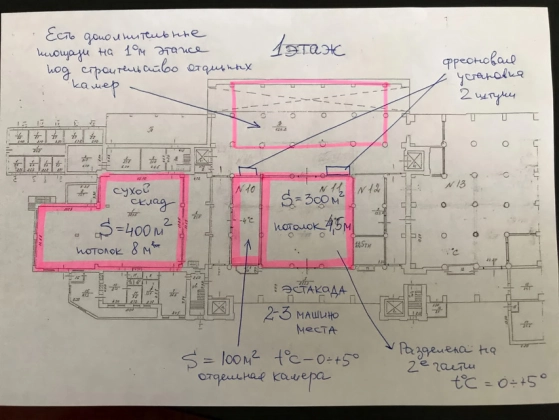 Есть дополнительные
площади на 1ом этаже
под строительство отдельных
камер
1 этаж
фреоновая
установка
2 штуки
сухой
склад
S = 400 м²
потолок 8 м
N 10
S = 300 м²
N 11
потолок 4,5 м
N 12
N 13
эстакада
2-3 машино
места
S = 100 м² t°C – 0÷+5°
отдельная камера
Разделена на
2е части
t°C = 0÷+5°